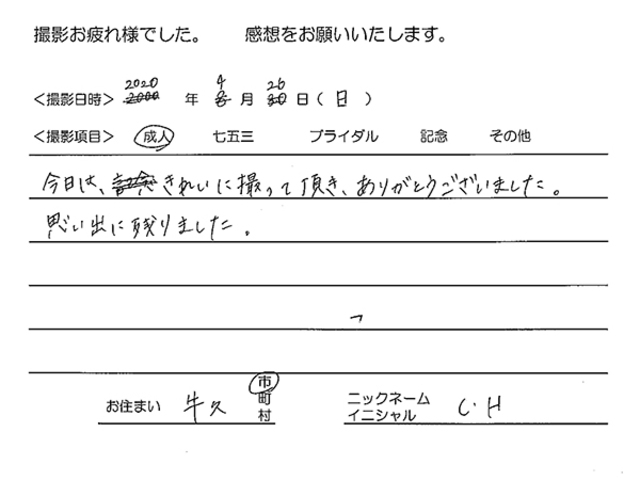 撮影お疲れ様でした。 感想をお願いいたします。
<撮影日時> 2020 年 4 月 26 日(日)
<撮影項目> 成人 七五三 ブライダル 記念 その他
今日は、きれいに撮って頂き、ありがとうございました。
思い出に残りました。
お住まい 牛久 市 町 村 ニックネーム イニシャル C・H